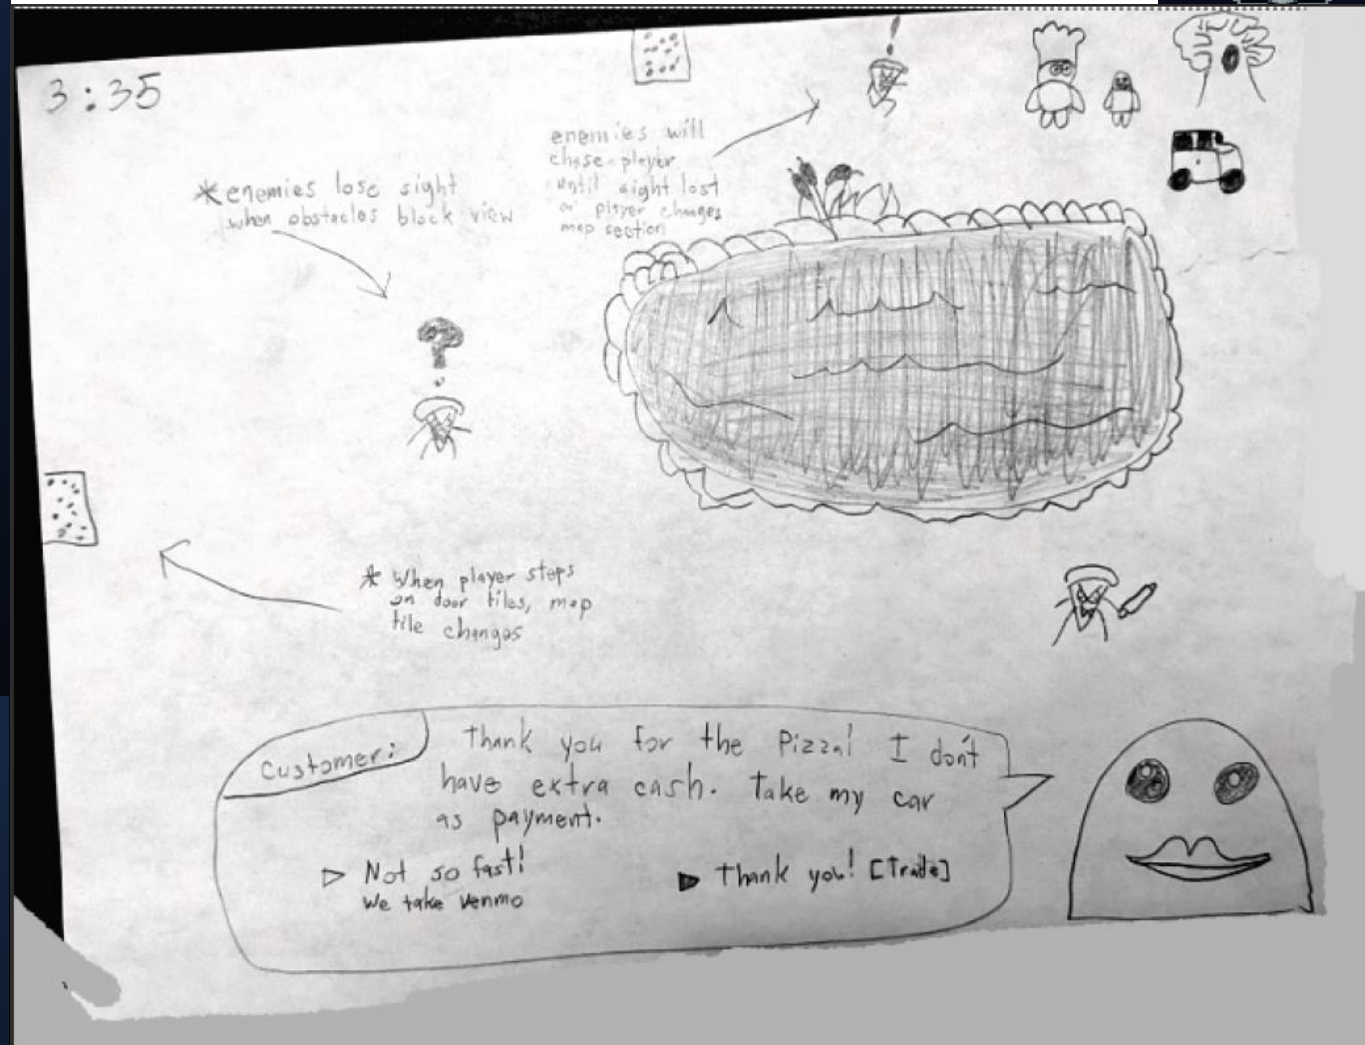 3:35
*enemies lose sight
when obstacles block view
enemies will
chase player
until sight lost
or player changes
map section
* When player steps
on door tiles, map
tile changes
Customer:
Thank you for the Pizza! I don't
have extra cash. Take my car
as payment.
▷ Not so fast!
We take venmo
▶ Thank you! [Trade]